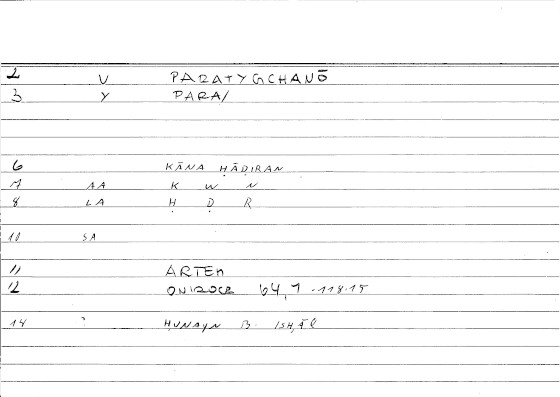 2 V PARATYGCHANŌ
3 Y PARA/
6 KĀNA ḤĀḌIRAN
7 AA K W N
8 LA Ḥ Ḍ R
10 SA
11 ARTEM
12 ONIROCR 64,7 -118.15
14 HUNAYN B. ISḤĀQ